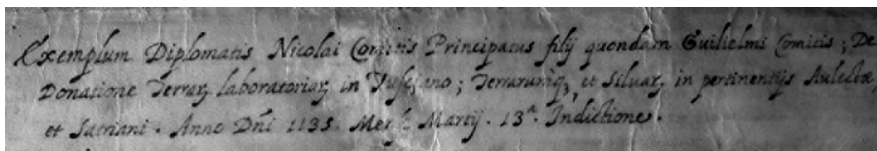 Exemplum Diplomatis Nicolai Comitis Principatus filij quondam Guilielmi Comitis; De
Donatione Terrarꝫ laboratoriarꝫ in ; Terrarumqꝫ et Siluarꝫ in pertinentijs Aulectæ,
et Satriani. Anno Dñi 1135. Martij. 13ª. Indictione.